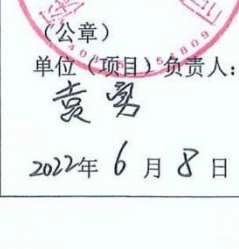 （公章）
单位（项目）负责人：
袁勇
2022年 6 月 8 日